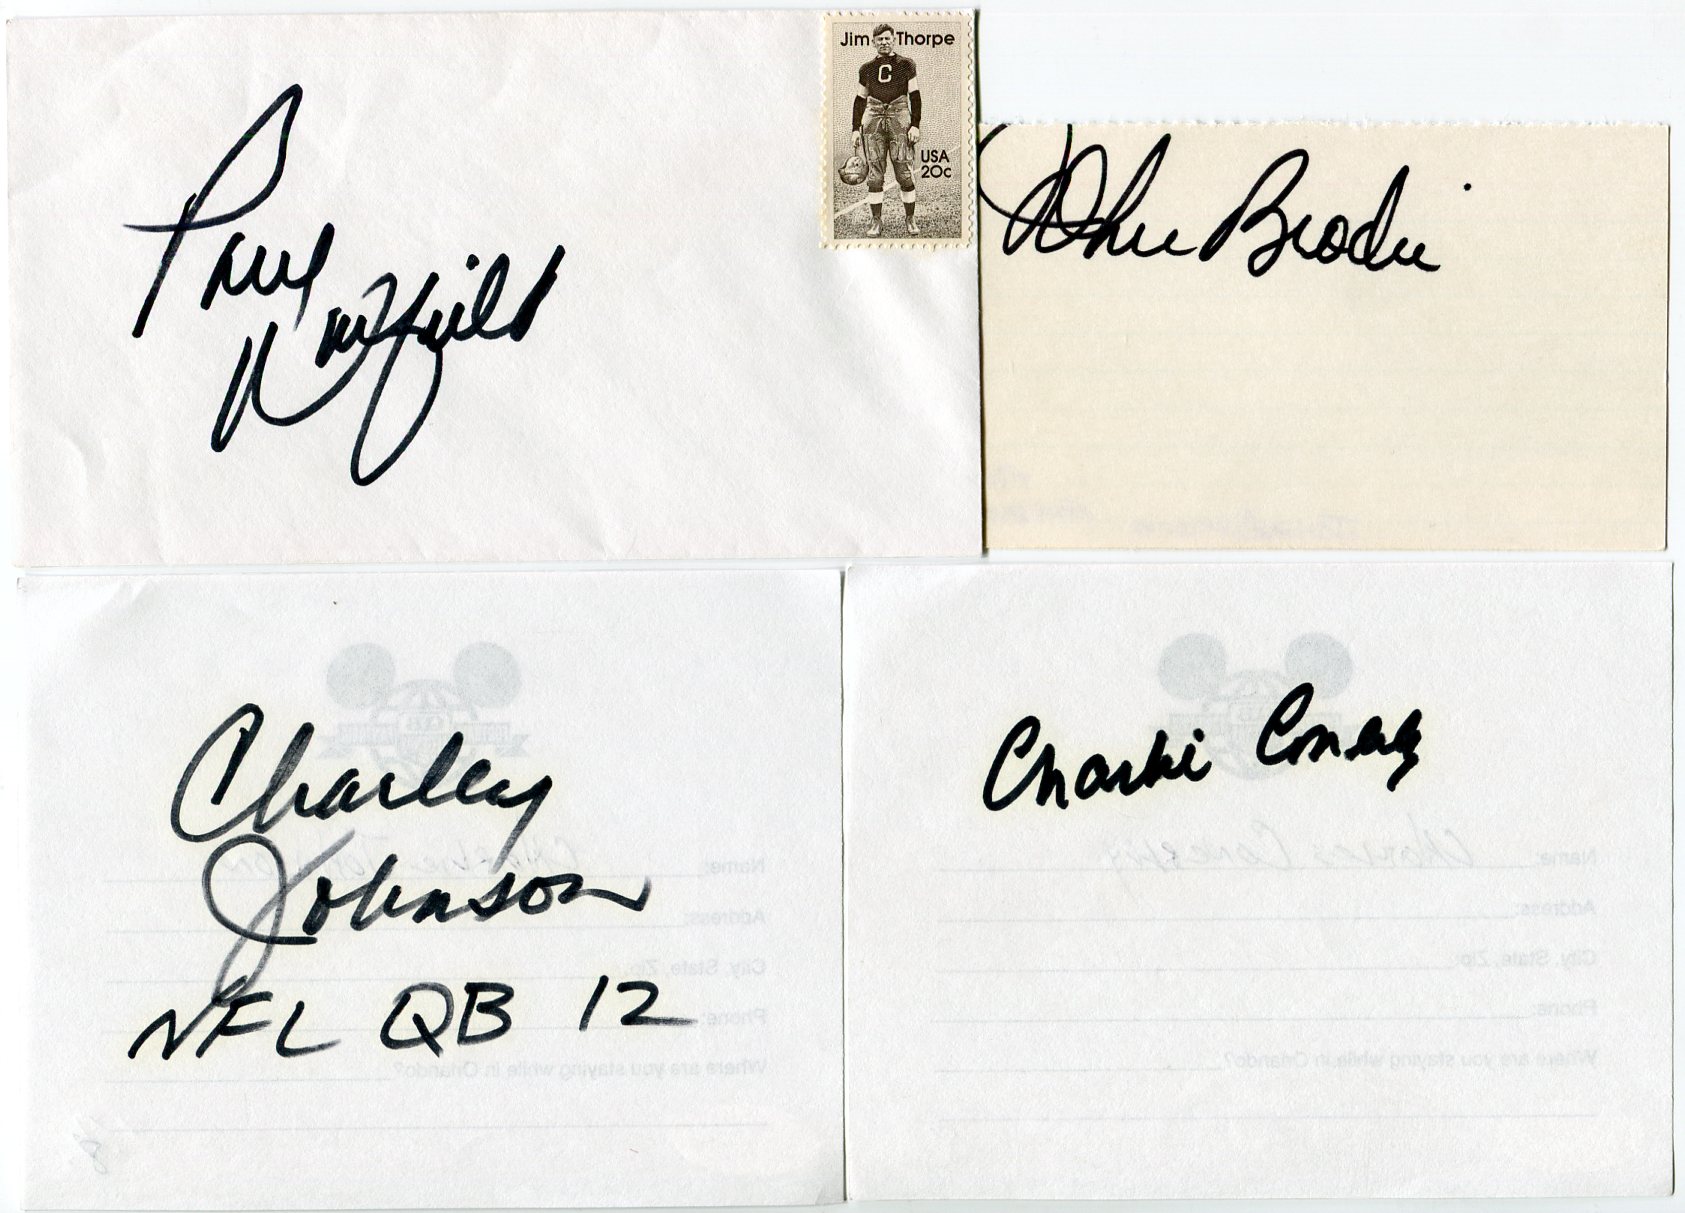 Paul
Warfield
Jim Thorpe
C
USA
20c
John Brodie
Charley
Johnson
NFL QB 12
Name: Charlie Johnson
Address:
City, State, Zip:
Phone:
Where are you staying while in Orlando?
8
Charlie Conerly
Name: Charles Conerly
Address:
City, State, Zip:
Phone:
Where are you staying while in Orlando?